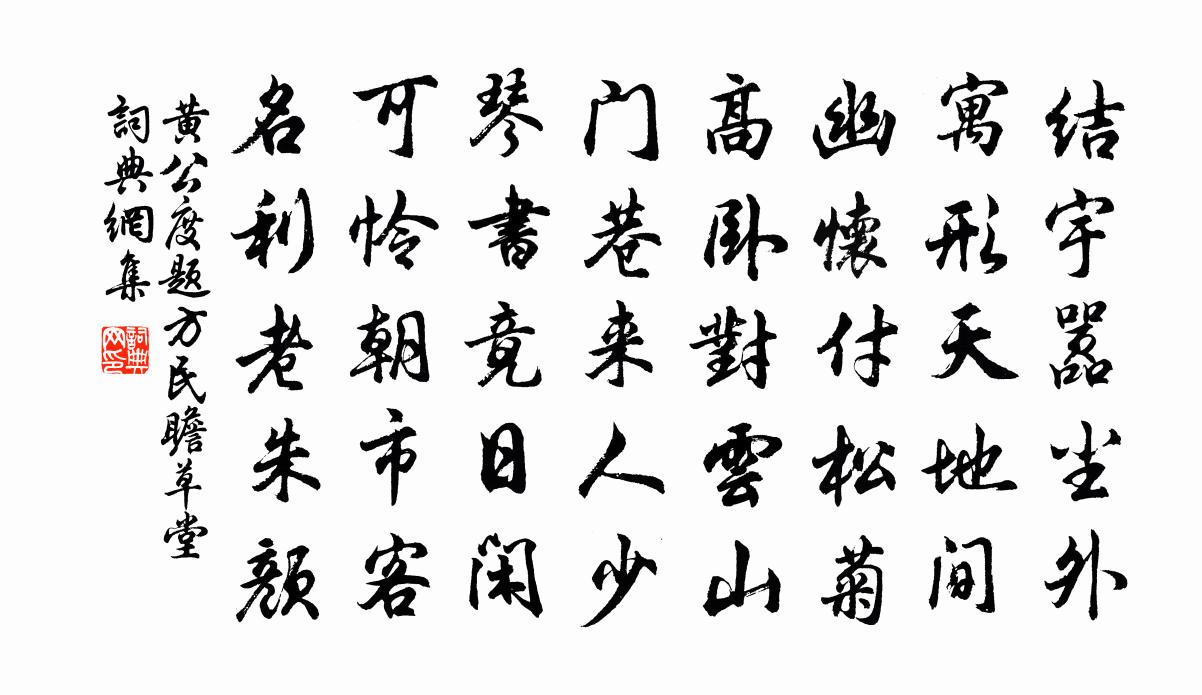 结宇嚣尘外
寓形天地间
幽懷付松菊
高卧對雲山
门巷来人少
琴書竟日閑
可怜朝市客
名利老朱颜
黄公度题方民瞻草堂
詞典網集
詞典网印